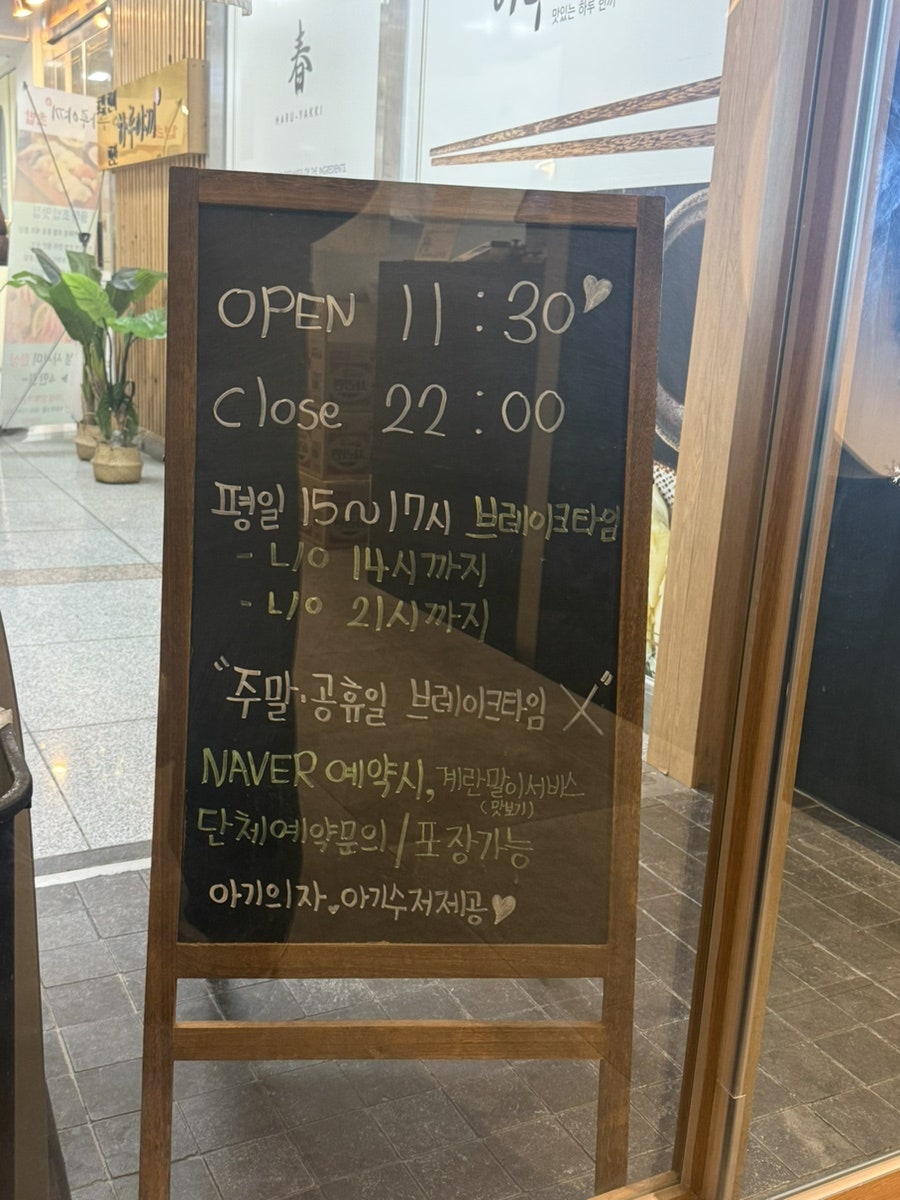 맛있는 하루 한끼
春
HARU-YAKKI
하루야끼
OPEN 11:30
Close 22:00
평일 15~17시 브레이크타임
- L/O 14시까지
- L/O 21시까지
"주말·공휴일 브레이크타임 X"
NAVER 예약시, 계란말이서비스
(맛보기)
단체예약문의 / 포장가능
아기의자, 아기수저제공